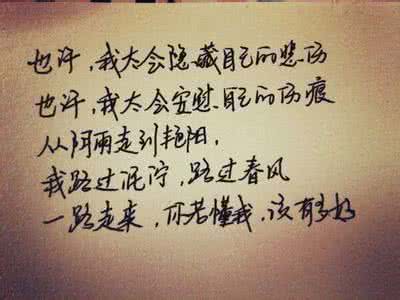 也许，我太会隐藏自己的悲伤
也许，我太会安慰自己的伤痕
从阴雨走到艳阳，
我路过泥泞，路过春风
一路走来，你若懂我，该有多好